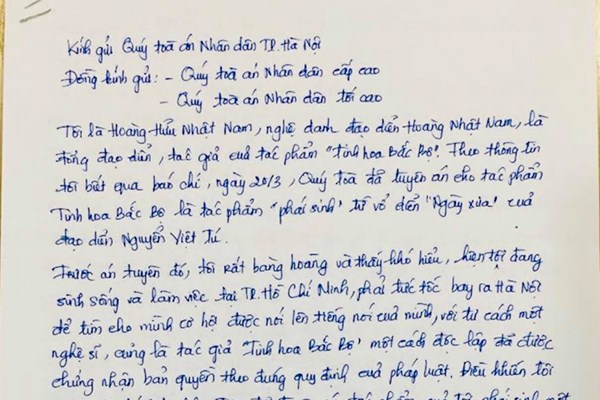 Kính gửi Quý toà án Nhân dân TP. Hà Nội
Đồng kính gửi: - Quý toà án Nhân dân cấp cao
- Quý toà án Nhân dân tối cao
Tôi là Hoàng Hữu Nhật Nam, nghệ danh đạo diễn Hoàng Nhật Nam, là
tổng đạo diễn, tác giả của tác phẩm "Tinh hoa Bắc Bộ". Theo thông tin
tôi biết qua báo chí, ngày 20/3, Quý toà đã tuyên án cho tác phẩm
Tinh hoa Bắc Bộ là tác phẩm "phái sinh" từ vở diễn "Ngày xưa" của
đạo diễn Nguyễn Việt Tú.
Trước án tuyên đó, tôi rất bàng hoàng và thấy khó hiểu, hiện tôi đang
sinh sống và làm việc tại TP. Hồ Chí Minh, phải tức tốc bay ra Hà Nội
để tìm cho mình cơ hội được nói lên tiếng nói của mình, với tư cách một
nghệ sĩ, cũng là tác giả "Tinh hoa Bắc Bộ" một cách độc lập đã được
chứng nhận bản quyền theo đúng quy định của pháp luật. Điều khiến tôi